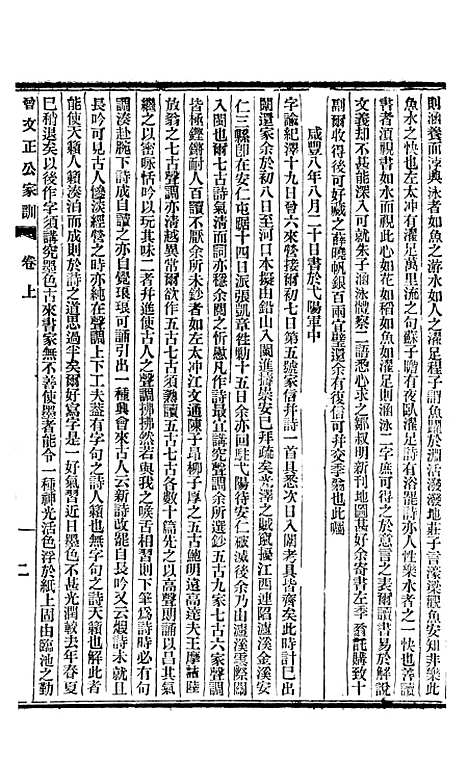 則涵養而㴑興泳者如魚之游水如人之濯足程子謂魚躍於淵活潑潑地莊子言濠梁觀魚安知非樂此
魚水之快也左太冲有濯足萬里流之句蘇子瞻有夜臥濯足詩有浴罷詩亦人性樂水者之一快也善讀
書者須視書如水而視此心如花如稻如魚如濯足則涵泳二字庶可得之於意言之表爾讀書易於解說
文義却不甚能深入可就朱子涵泳體察二語悉心求之鄒叔明新刊地圖甚好余寄書左季翁託購致十
副爾收得後可好藏之薛曉帆銀百兩宜璧還余有復信可幷交季翁也此囑
咸豐八年八月二十日書於弋陽軍中
字諭紀澤十九日曾六來營接爾初七日第五號家信幷詩一首具悉次日入闈考具皆齊矣此時計已出
闈還家余於初八日至河口本擬由鉛山入閩進擣崇安已拜疏矣光澤之賊竄擾江西連陷瀘溪金溪安
仁三縣卽在安仁屯踞十四日派張凱章往勦十五日余亦回駐弋陽待安仁破滅後余乃由瀘溪雲際關
入閩也爾七古詩氣清而詞亦穩余閱之忻慰凡作詩最宜講究聲調余所選鈔五古九家七古六家聲調
皆極鏗鏘耐人百讀不厭余所未鈔者如左太冲江文通陳子昂柳子厚之五古鮑明遠高達夫王摩詰陸
放翁之七古聲調亦清越異常爾欲作五古七古須熟讀五古七古各數十篇先之以高聲朗誦以昌其氣
繼之以密咏恬吟以玩其味二者幷進使古人之聲調拂拂然若與我之喉舌相習則下筆爲詩時必有句
調湊赴腕下詩成自讀之亦自覺琅琅可誦引出一種興會來古人云新詩改罷自長吟又云煅詩未就且
長吟可見古人慘淡經營之時亦純在聲調上下工夫蓋有字句之詩人籟也無字句之詩天籟也解此者
能使天籟人籟湊泊而成則於詩之道思過半矣爾好寫字是一好氣習近日墨色不甚光潤較去年春夏
已稍退矣以後作字須講究墨色古來書家無不善使墨者能令一種神光活色浮於紙上固由臨池之勤
曾文正公家訓 卷上
一二